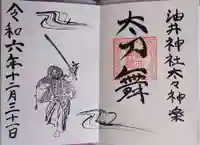 油井神社太々神楽
太刀舞
令和六年十二月三十一日